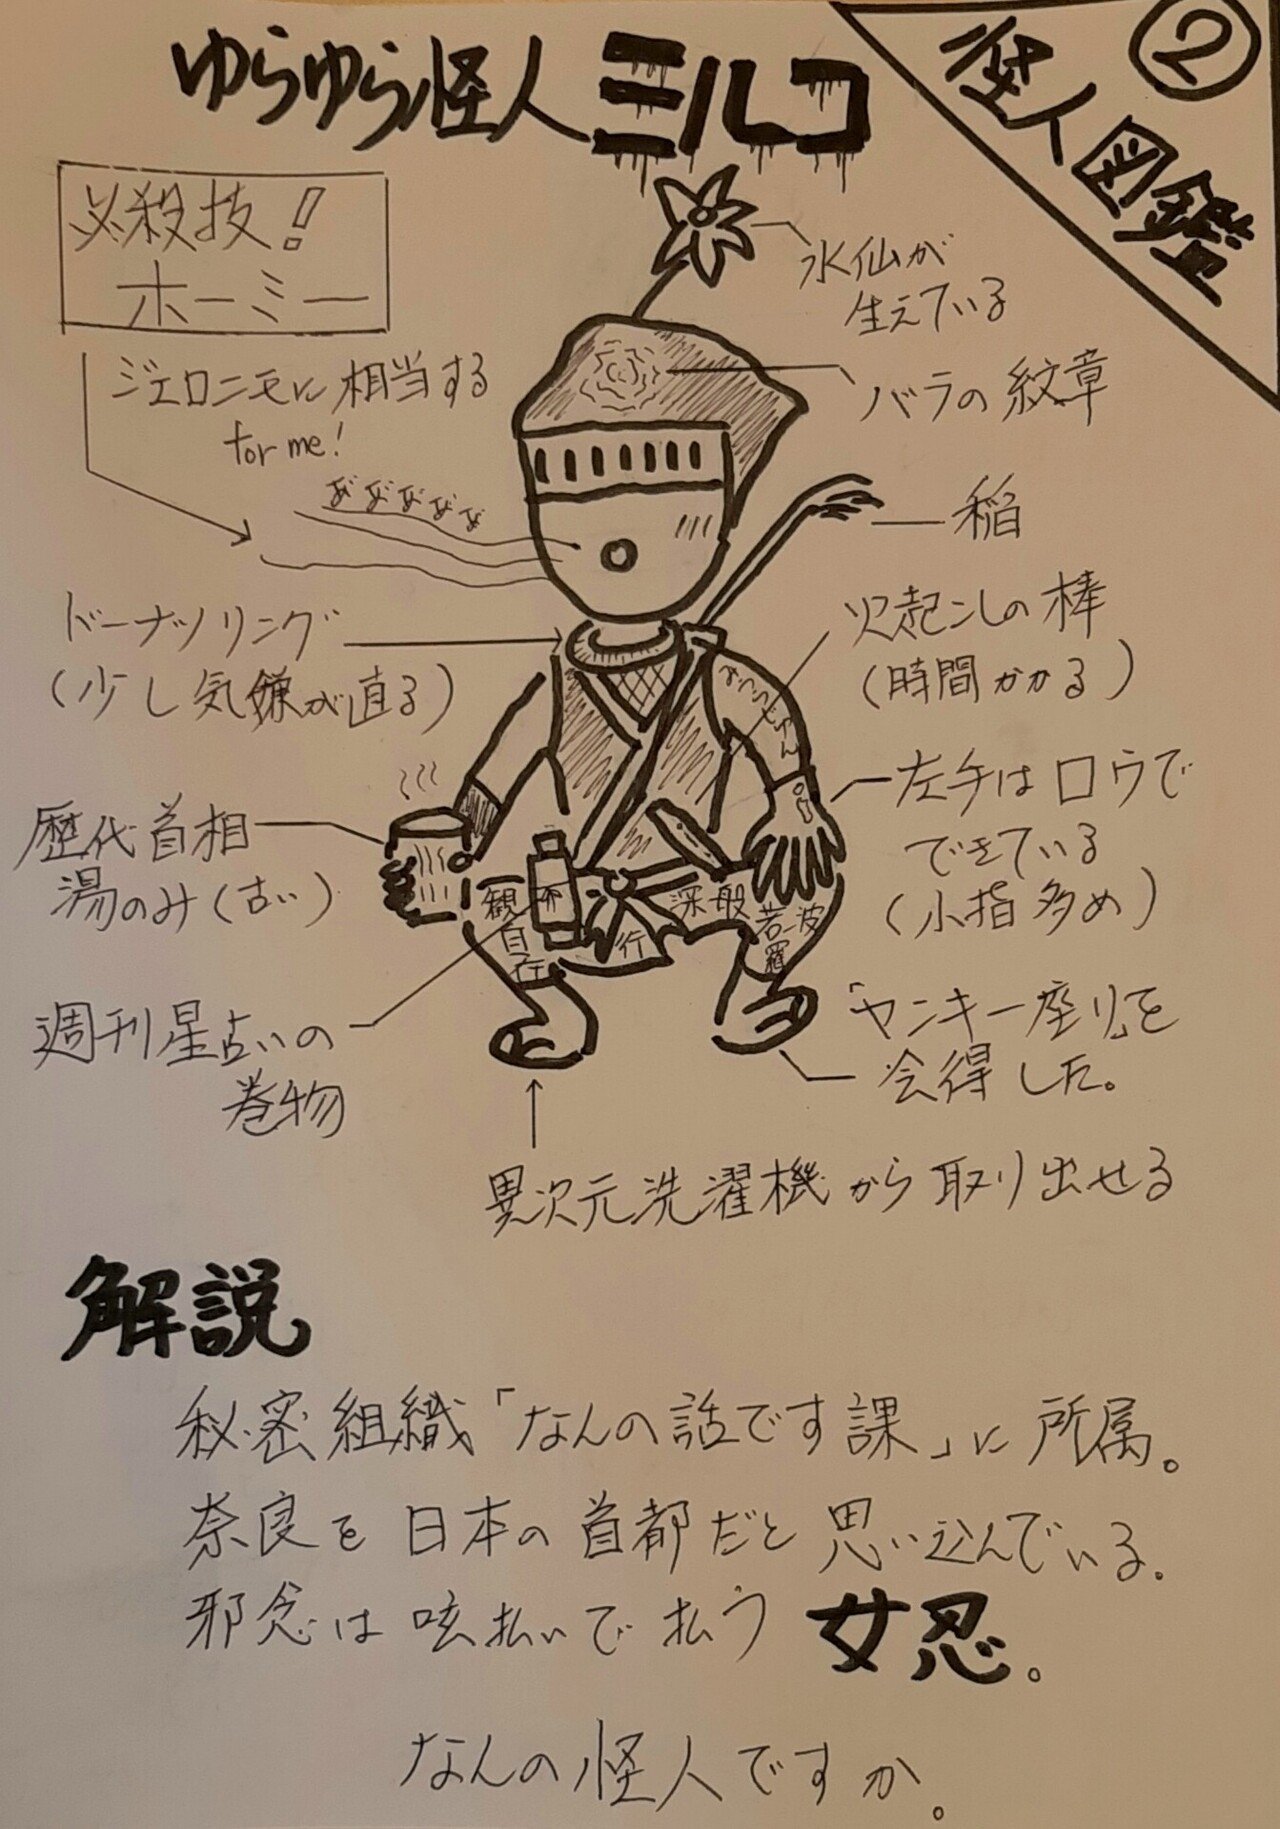 ②
怪人図鑑
ゆらゆら怪人ミルコ
必殺技!
ホーミー
ジェロニモに相当する
for me!
水仙が
生えている
バラの紋章
稲
ドーナツリング
(少し気嫌が直る)
火起こしの棒
(時間かかる)
左手はロウで
できている
(小指多め)
歴代首相
湯のみ(古い)
観
自
在
行
深般
若波
羅
週刊星占いの
巻物
「ヤンキー座り」を
会得した。
異次元洗濯機から取り出せる
解説
秘密組織「なんの話です課」に所属。
奈良を日本の首都だと思い込んでいる。
邪念は咳払いで払う女忍。
なんの怪人ですか。